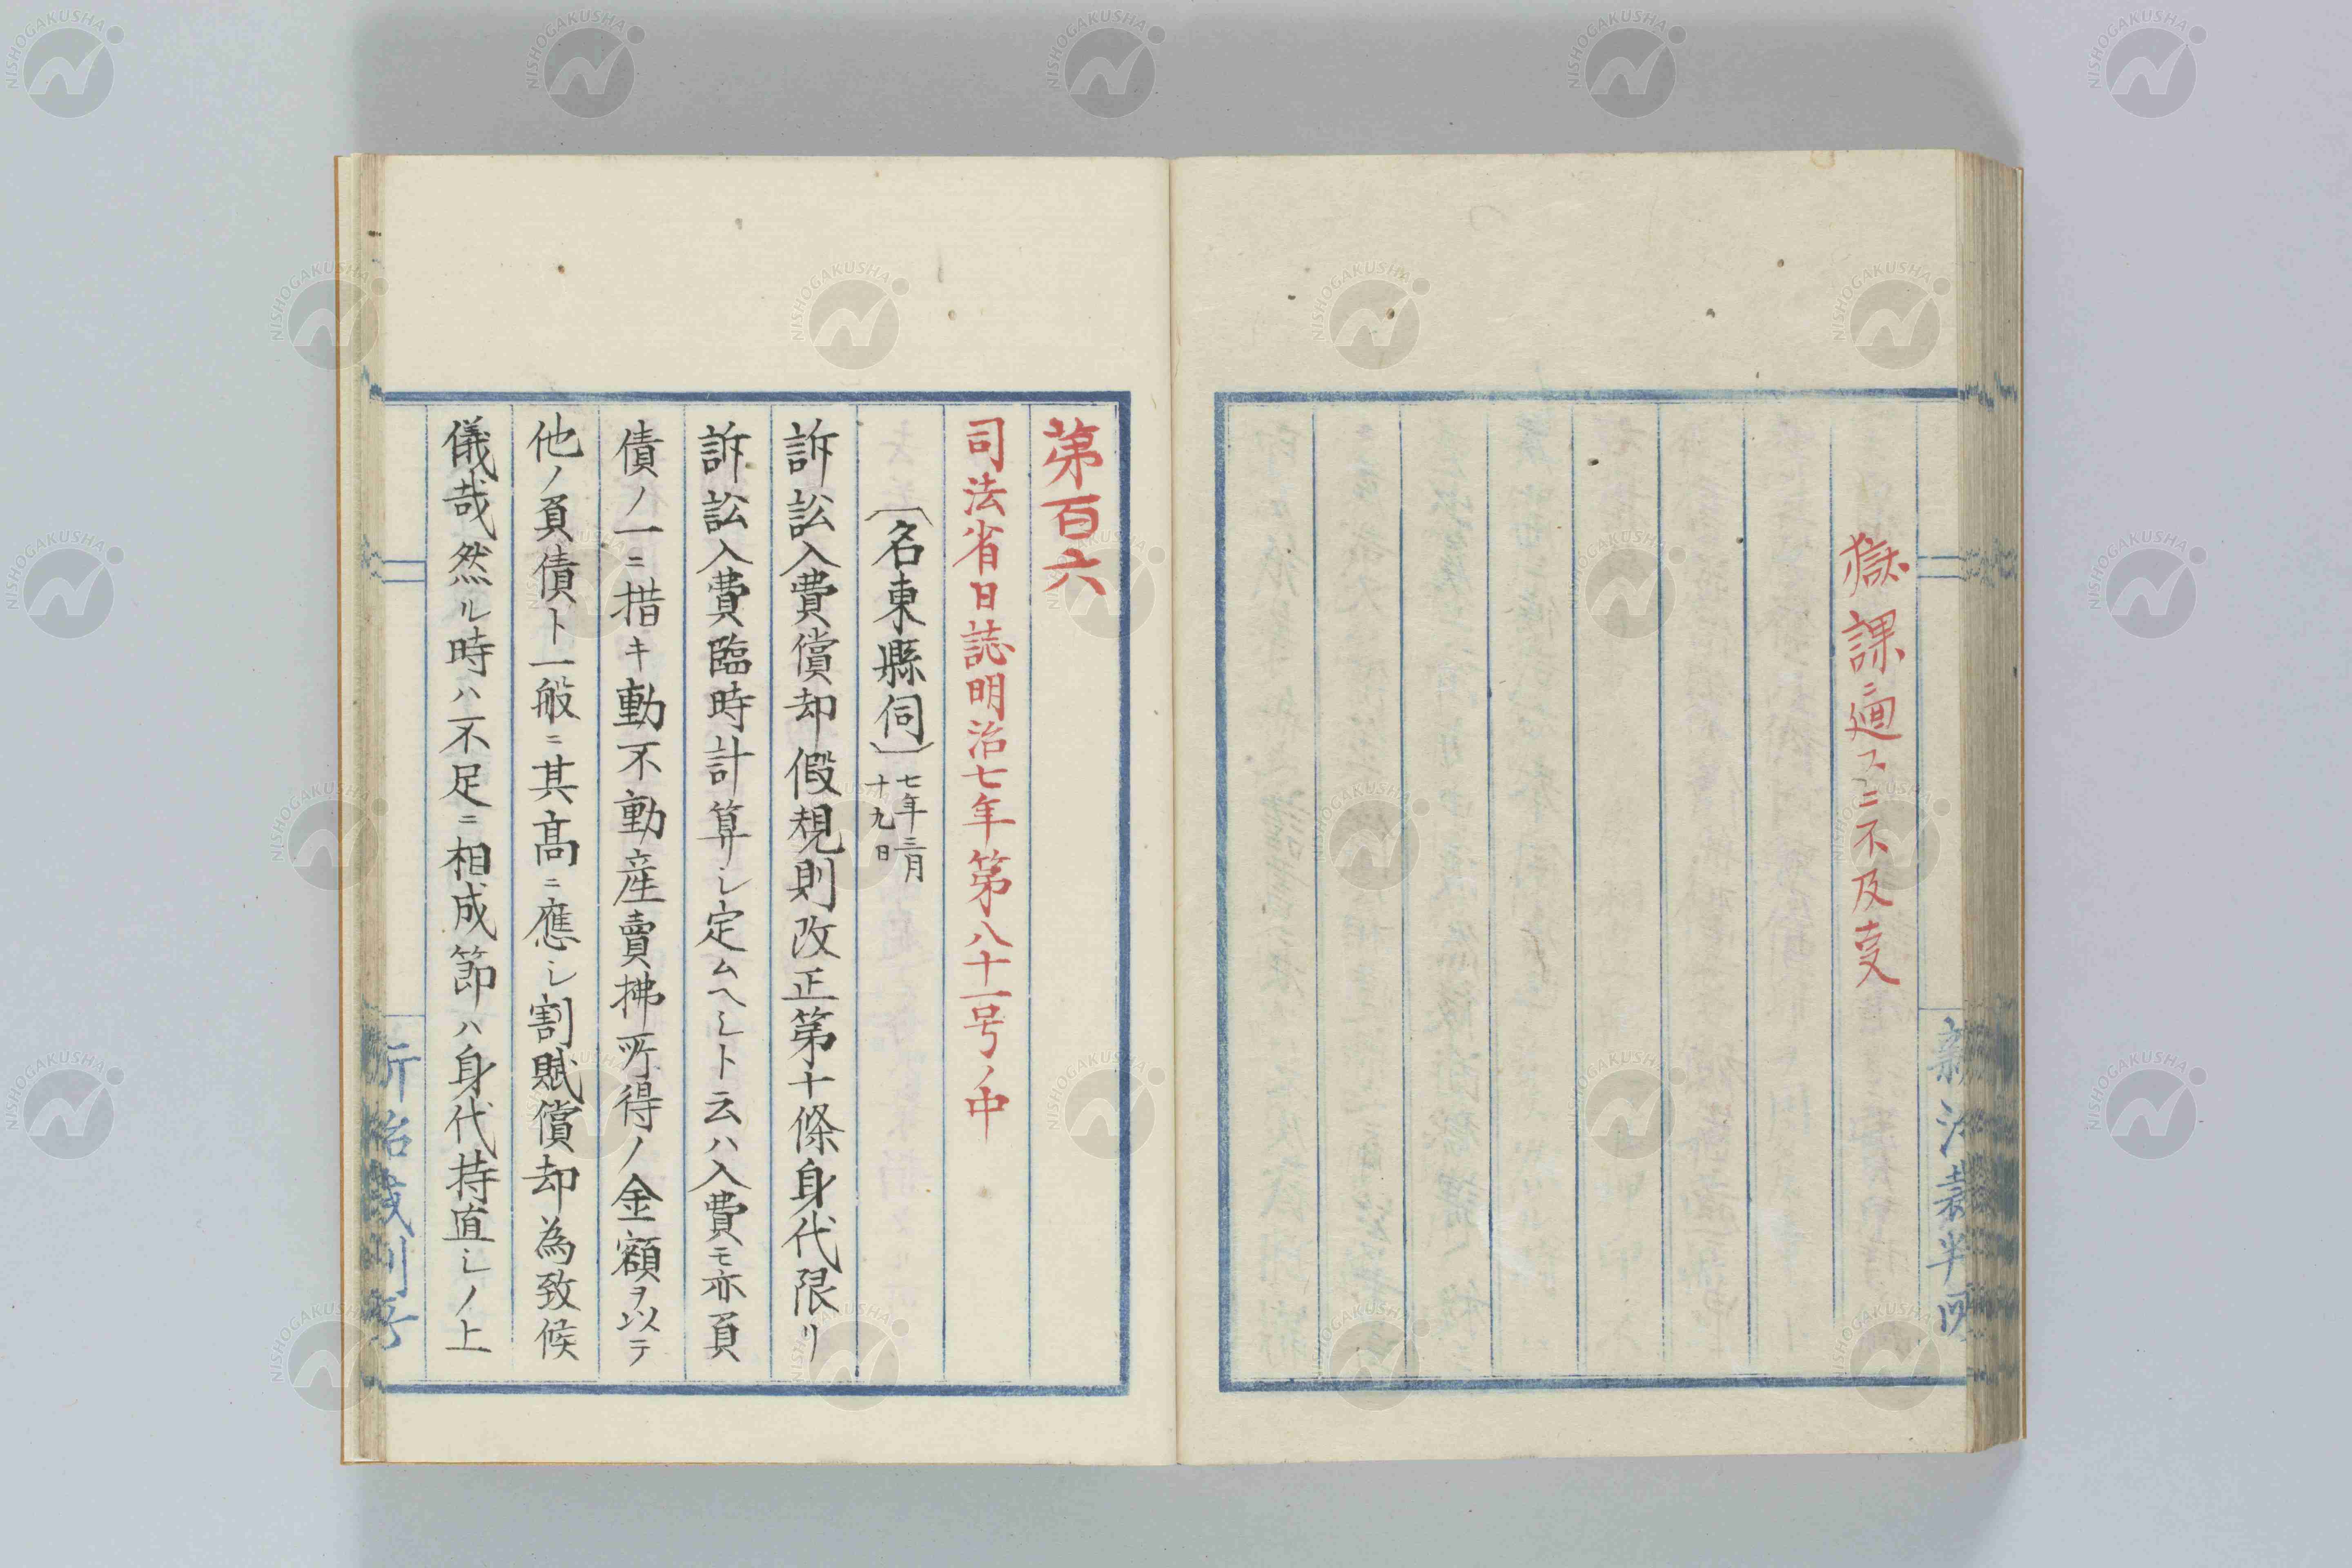 獄課ニ適スニ不及事
第百六
司法省日誌明治七年第八十一号ノ中
〔名東縣伺〕七年三月十九日
訴訟入費償却假規則改正第十條身代限リ
訴訟入費臨時計算シ定ムヘシト云ハ入費モ亦負
債ノ一ニ措キ動不動産賣拂所得ノ金額ヲ以テ
他ノ負債ト一般ニ其高ニ應シ割賦償却為致候
儀哉然ル時ハ不足ニ相成節ハ身代持直シノ上
NISHOGAKUSHA